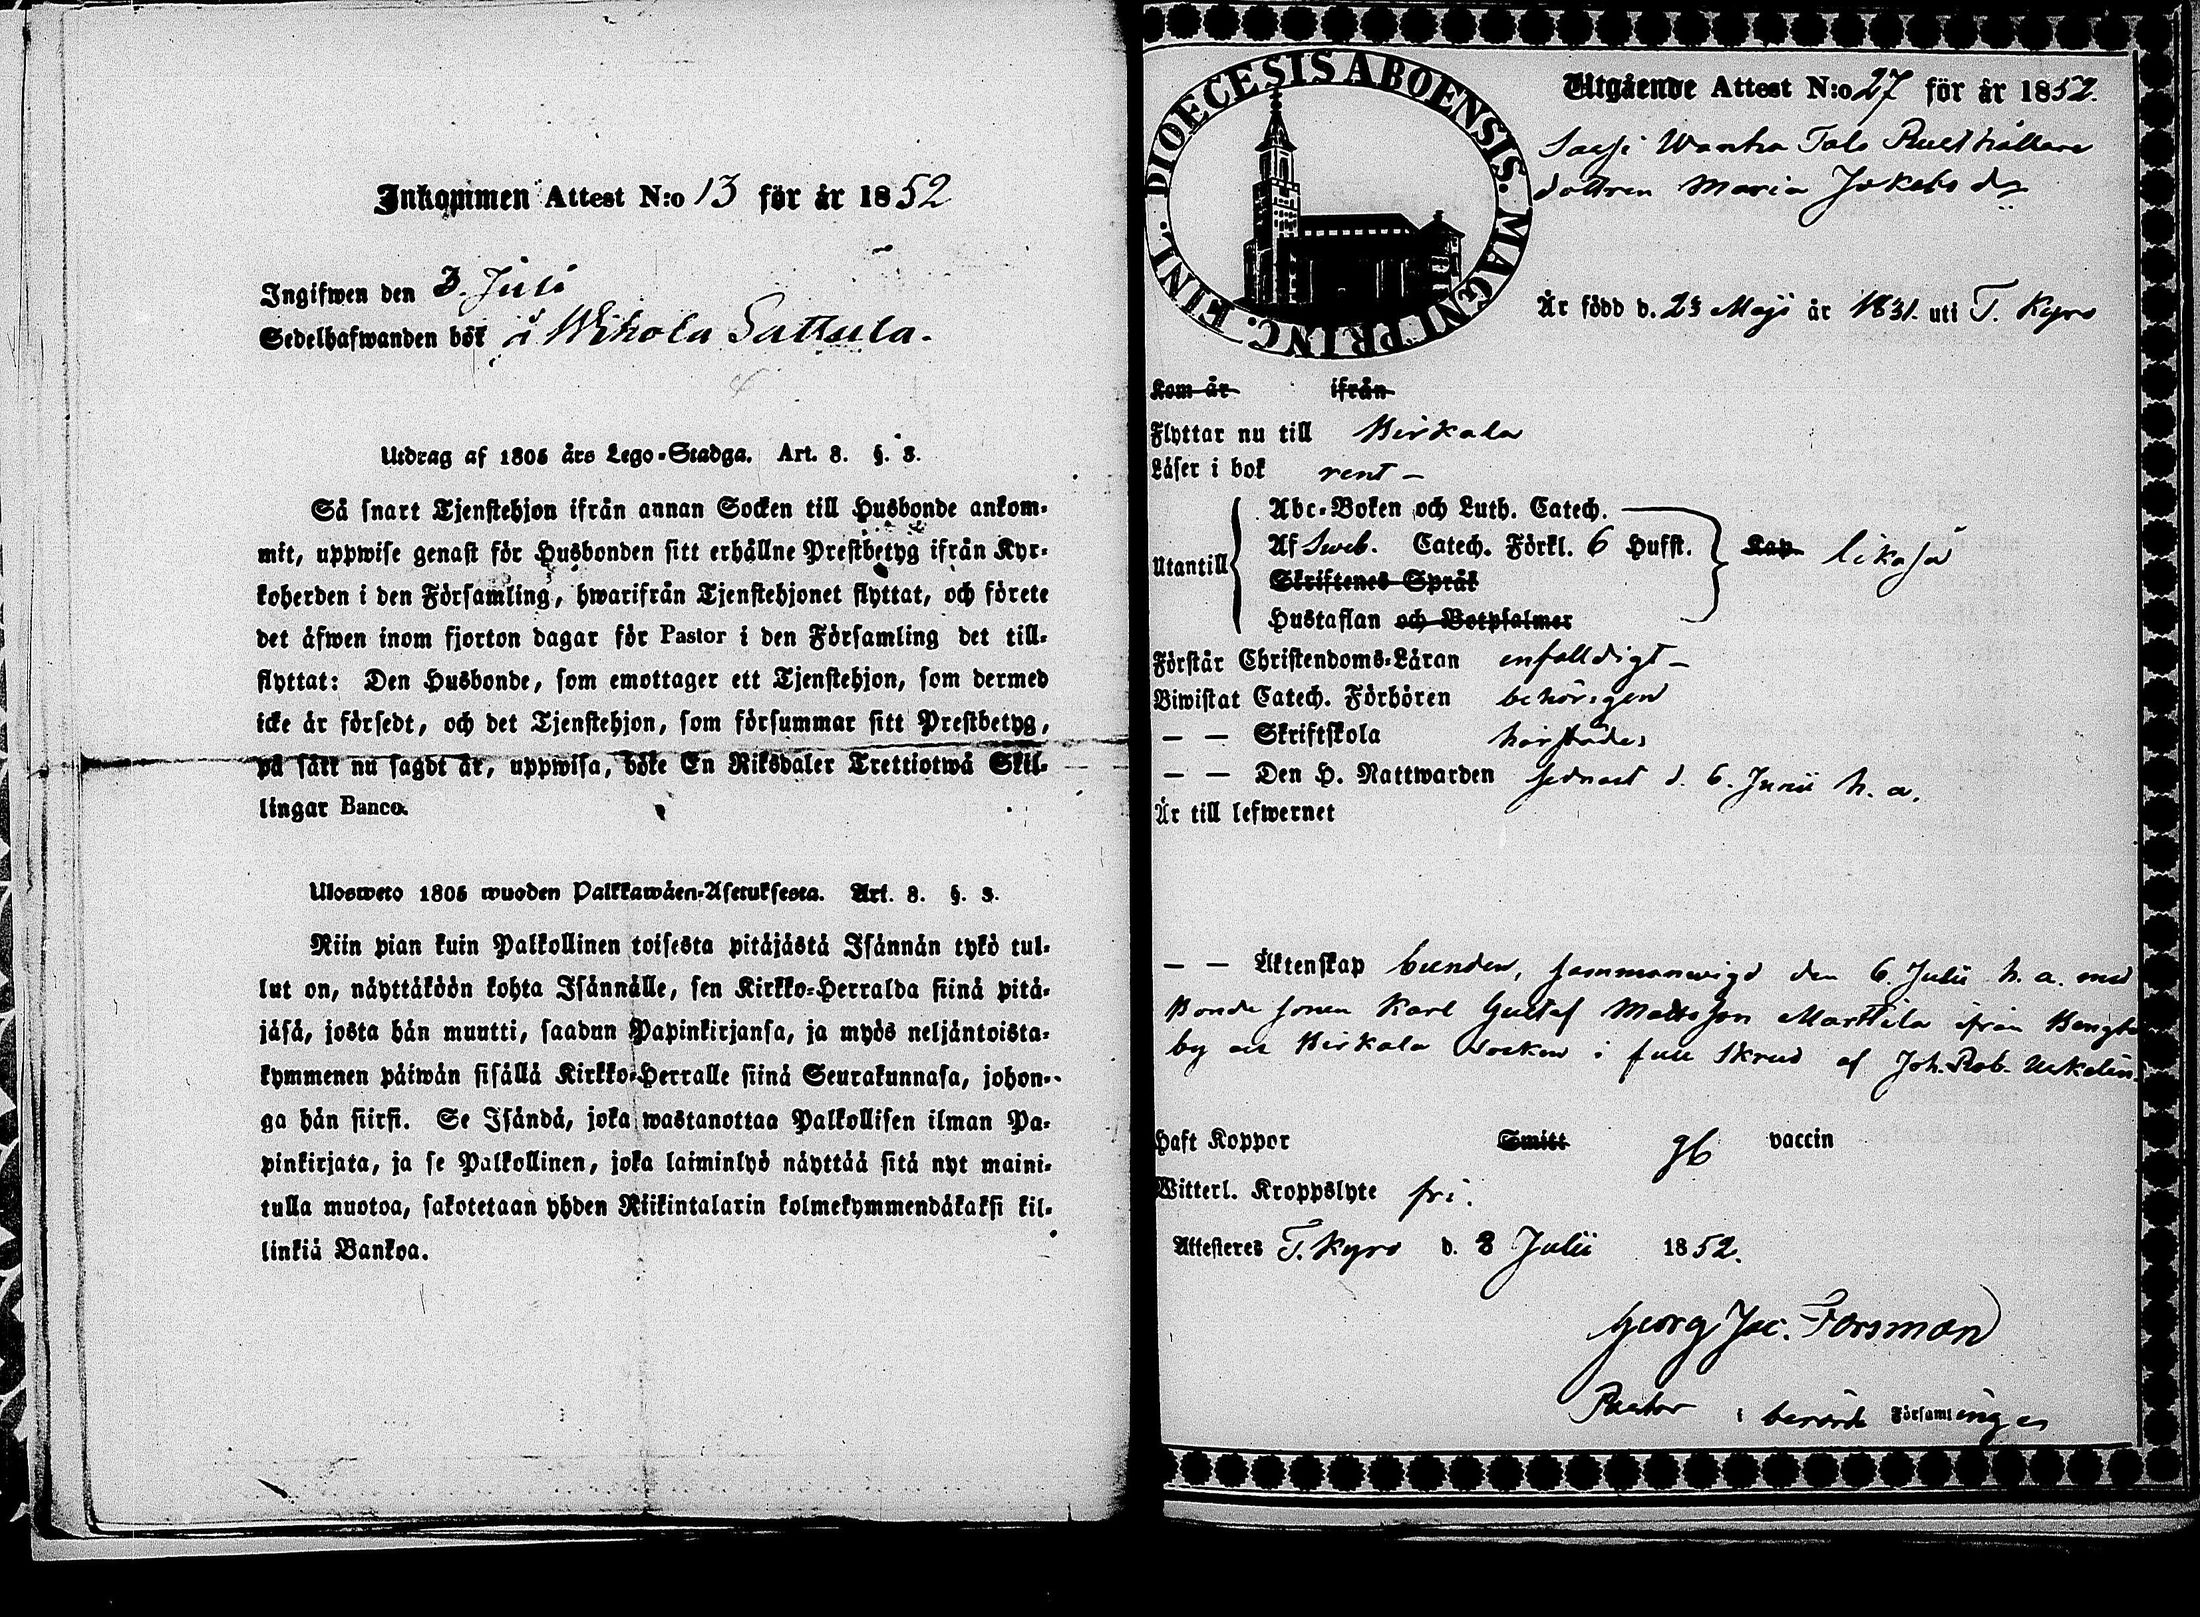 Inkommen Attest N:o 13 för år 1852
Ingifwen den 3. Juli
Sedelhafwanden bör å Wihola Sattula.
Utdrag af 1805 års Lego-Stadga. Art. 8. §. 3.
Så snart Tjenstehjon ifrån annan Socken till Husbonde ankom-
mit, uppwise genast för Husbonden sitt erhållne Prestbetyg ifrån Kyr-
koherden i den Församling, hwarifrån Tjenstehjonet flyttat, och förete
det äfwen inom fjorton dagar för Pastor i den Församling det till-
flyttat: Den Husbonde, som emottager ett Tjenstehjon, som dermed
icke är försedt, och det Tjenstehjon, som försummar sitt Prestbetyg,
på sätt nu sagdt är, uppwisa, böte En Riksdaler Trettiotwå Skil-
lingar Banco.
Ulosweto 1805 wuoden Palkkawäen-Asetuksesta. Art. 8. §. 3.
Niin pian kuin Palkollinen toisesta pitäjästä Isännän tykö tul-
lut on, näyttäköön kohta Isännälle, sen Kirkko-Herralda siinä pitä-
jäsä, josta hän muutti, saadun Papinkirjansa, ja myös neljäntoista-
kymmenen päiwän sisällä Kirkko-Herralle siinä Seurakunnasa, johon-
ga hän siirsi. Se Isändä, joka wastanottaa Palkollisen ilman Pa-
pinkirjata, ja se Palkollinen, joka laiminlyö näyttää sitä nyt maini-
tulla muotoa, sakotetaan yhden Riikintalarin kolmekymmendäkaksi kil-
linkiä Bankoa.
DIOECESIS ABOENSIS. MAGNI PRINC. FINL.
Utgående Attest N:o 27 för år 1852.
Wanha Talo Rusthållare
dottren Maria Jakobs dr
Är född d. 23 Maji år 1831. uti T. Kyro
Kom år ifrån
Flyttar nu till Birkala
Läser i bok rent –
Utantill
Abc-Boken och Luth. Catech.
Af Sweb. Catech. Förkl. 6 Hufst.
Skriftenes Språk
Hustaflan och Botpsalmer
Kap. likaså
Förstår Christendoms-Läran enfalldigt –
Biwistat Catech. Förhören behörigen
– – Skriftskola härstädes
– – Den H. Nattwarden sednast d. 6. Junii h. a.
Är till lefwernet
– – Äktenskap bunden, sammanwigd den 6. Julii h. a. med
Bonde sonen Karl Gustaf Mattsson Marttila ifrån
by Birkala socken i full Skrud af Joh. Rob.
Haft Koppor Smitt gb vaccin
Witterl. Kroppslyte fri.
Attesteres T. Kyro d. 8 Julii 1852.
Georg Jac. Forsman
Pastor i berörde Församlingen